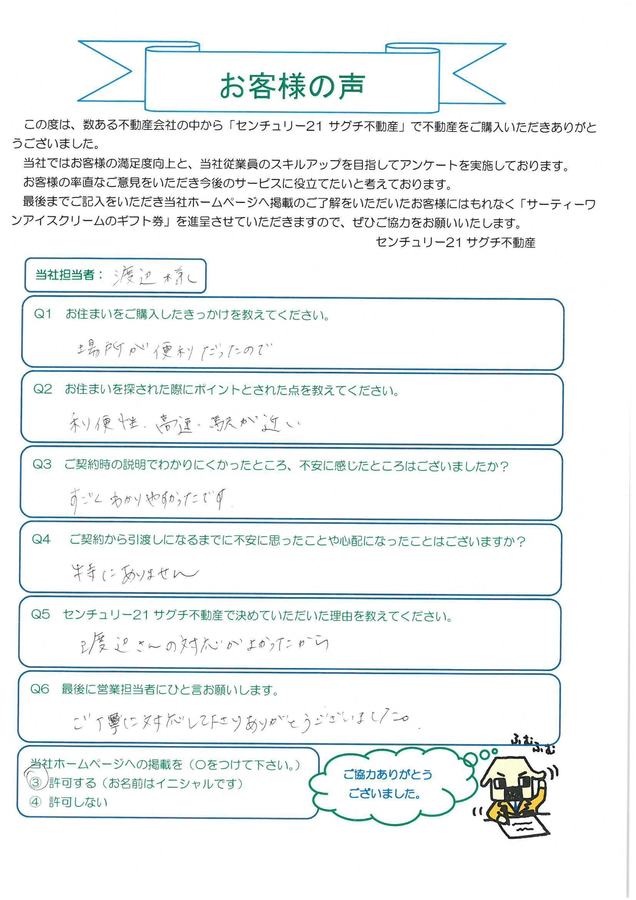 お客様の声
この度は、数ある不動産会社の中から「センチュリー21 サグチ不動産」で不動産をご購入いただきありがと
うございました。
当社ではお客様の満足度向上と、当社従業員のスキルアップを目指してアンケートを実施しております。
お客様の率直なご意見をいただき今後のサービスに役立てたいと考えております。
最後までご記入をいただき当社ホームページへ掲載のご了解をいただいたお客様にはもれなく「サーティーワ
ンアイスクリームのギフト券」を進呈させていただきますので、ぜひご協力をお願いいたします。
センチュリー21 サグチ不動産
当社担当者： 渡辺様
Q1 お住まいをご購入したきっかけを教えてください。
場所が便利だったので
Q2 お住まいを探された際にポイントとされた点を教えてください。
利便性、高速、駅が近い
Q3 ご契約時の説明でわかりにくかったところ、不安に感じたところはございましたか？
すごくわかりやすかったです
Q4 ご契約から引渡しになるまでに不安に思ったことや心配になったことはございますか？
特にありません
Q5 センチュリー21 サグチ不動産で決めていただいた理由を教えてください。
渡辺さんの対応がよかったから
Q6 最後に営業担当者にひと言お願いします。
ご丁寧に対応して下さりありがとうございました。
ふむふむ
当社ホームページへの掲載を（○をつけて下さい。）
③ 許可する（お名前はイニシャルです）
④ 許可しない
ご協力ありがとう
ございました。